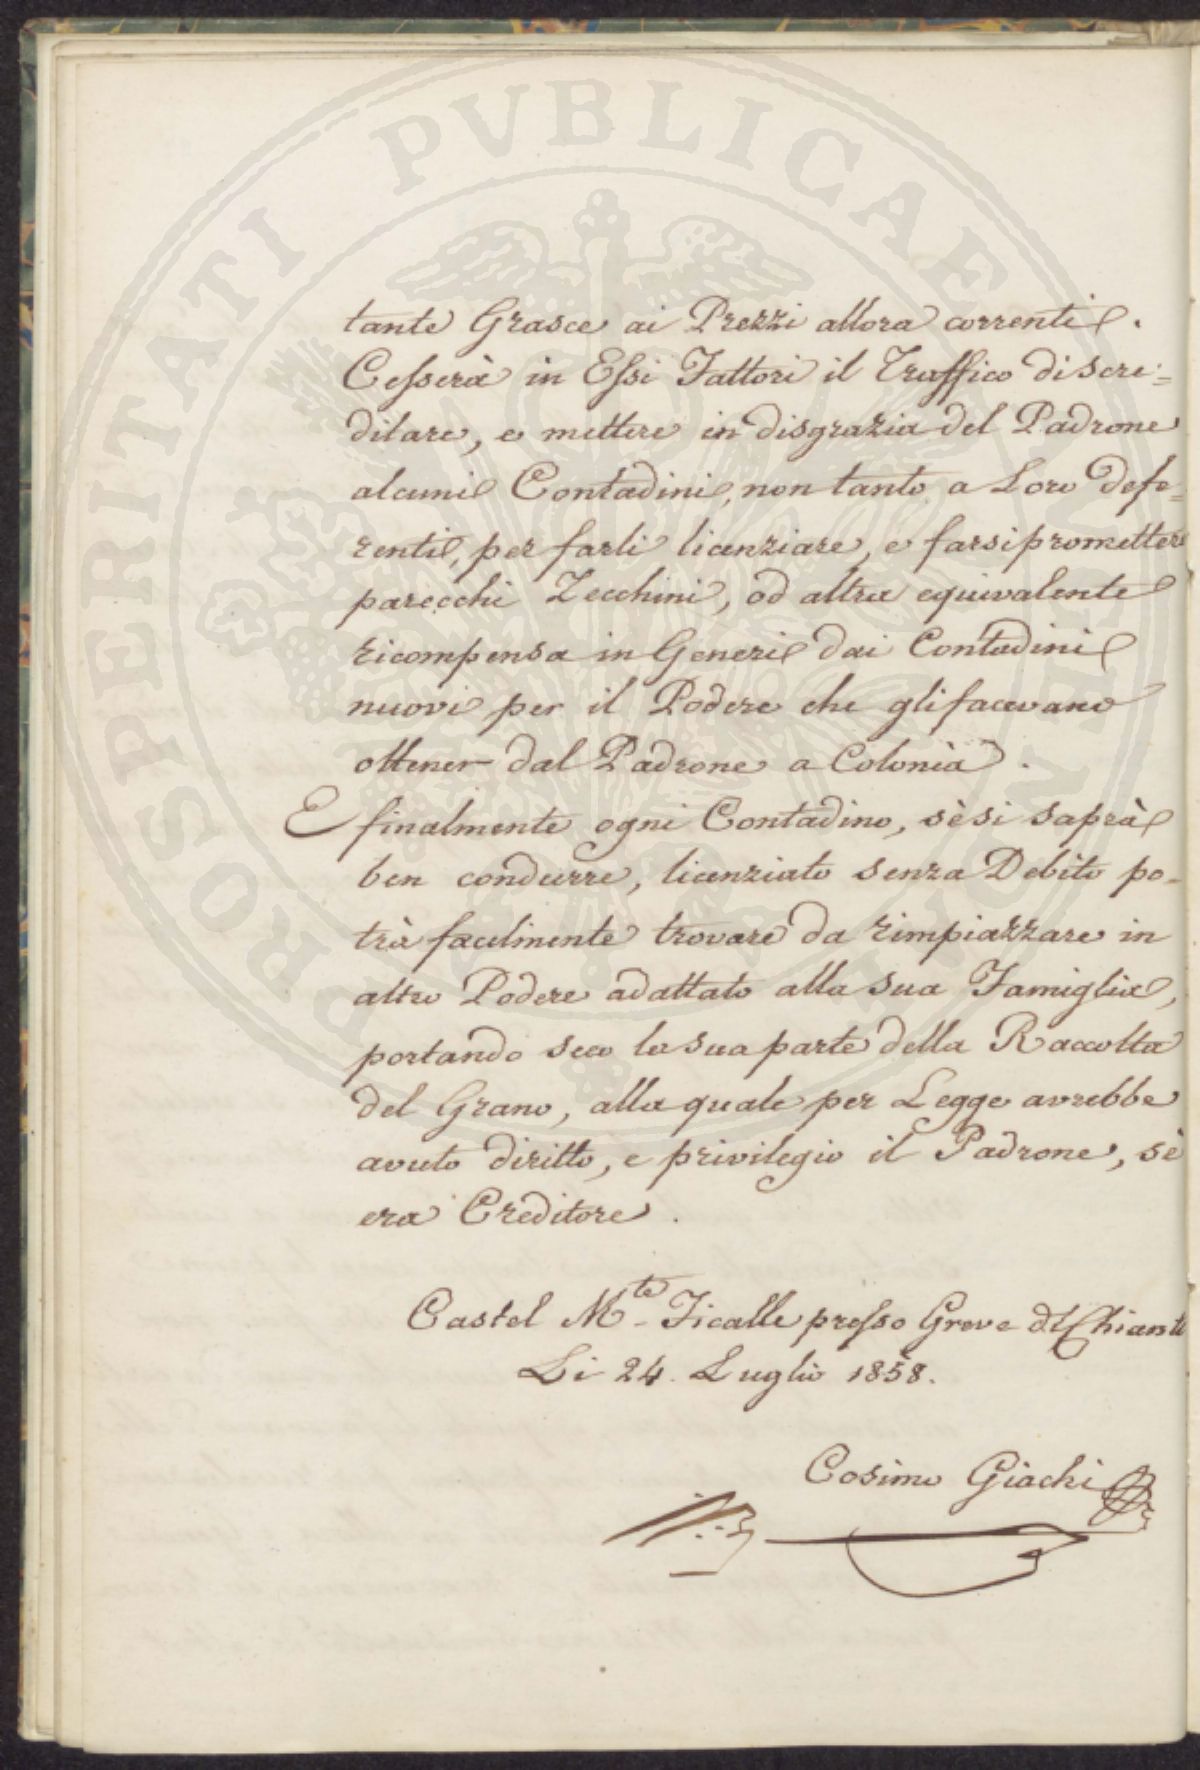 tante Grasce ai Prezzi allora correnti.
Cesserà in Essi Fattori il Traffico di scre=
ditare, e mettere in disgrazia del Padrone
alcuni Contadini, non tanto a Loro defe=
renti, per farli licenziare, e farsi promettere
parecchi Zecchini, od altra equivalente
ricompensa in Generi dai Contadini
nuovi per il Podere che gli facevano
ottener dal Padrone a Colonìa.
E finalmente ogni Contadino, sè si saprà
ben condurre, licenziato senza Debito po-
trà facilmente trovare da rimpiazzare in
altro Podere adattato alla sua Famiglia,
portando seco la sua parte della Raccolta
del Grano, alla quale per Legge avrebbe
avuto diritto, e privilegio il Padrone, sè
era Creditore.
Castel M.te Ficalle presso Greve di Chianti
Li 24. Luglio 1858.
Cosimo Giachi
PROSPERITATI PVBLICAE